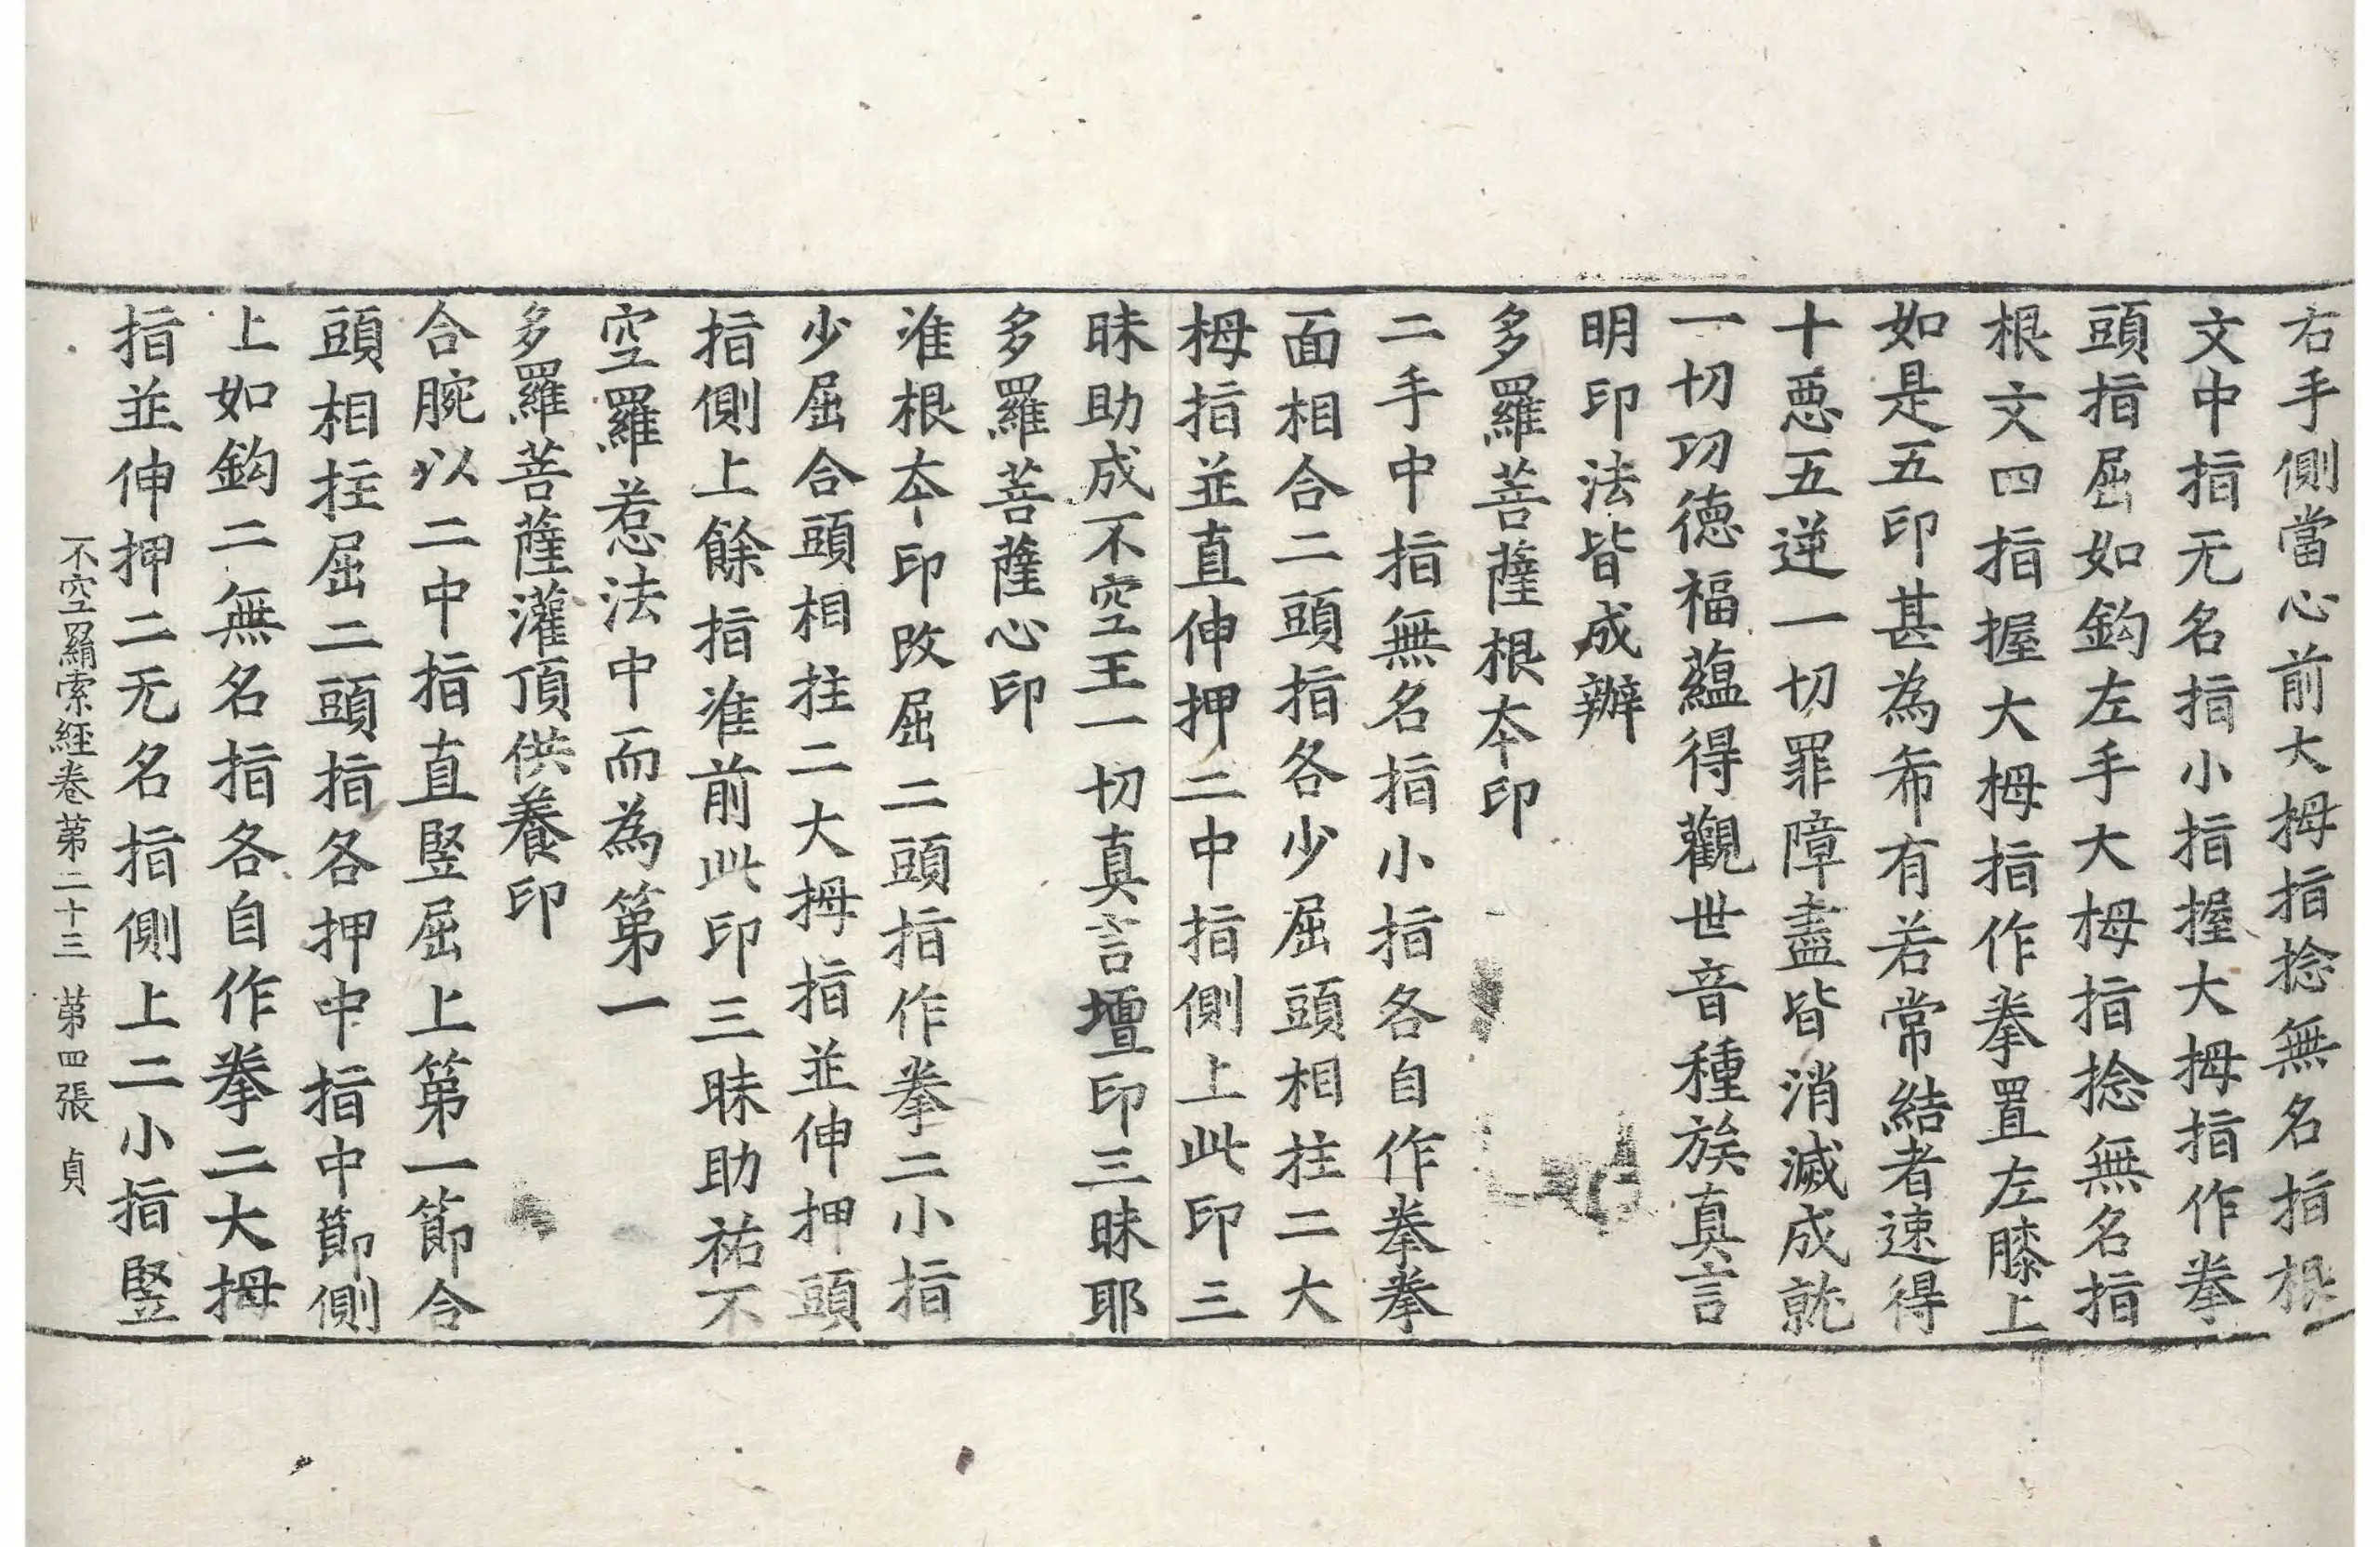 右手側當心前大拇指捻無名指根
文中指无名指小指握大拇指作拳
頭指屈如鈎左手大拇指捻無名指
根文四指握大拇指作拳置左膝上
如是五印甚為希有若常結者速得
十惡五逆一切罪障盡皆消滅成就
一切功德福蘊得觀世音種族真言
明印法皆成辦
多羅菩薩根本印
二手中指無名指小指各自作拳拳
面相合二頭指各少屈頭相拄二大
拇指並直伸押二中指側上此印三
昧助成不空王一切真言壇印三昧耶
多羅菩薩心印
准根本印改屈二頭指作拳二小指
少屈合頭相拄二大拇指並伸押頭
指側上餘指准前此印三昧助祐不
空羅惹法中而為第一
多羅菩薩灌頂供養印
合腕以二中指直豎屈上第一節合
頭相拄屈二頭指各押中指中節側
上如鈎二無名指各自作拳二大拇
指並伸押二无名指側上二小指豎
不空羂索經卷第二十三 第四張 貞